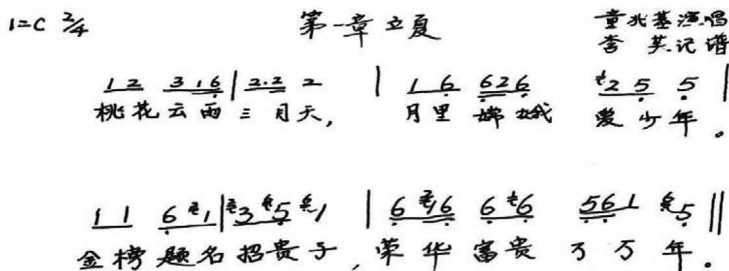 1=C 2/4
第一章 立夏
童兆基演唱
李英记谱
1 2 3 1 6 | 2·2 2 | 1 6 6 2 6 2 5 5 |
桃花云雨三月天, 月里嫦娥 爱少年。
1 1 6 1 | 3 5 1 | 6 6 6 6 5 6 1 5 ||
金榜题名招贵子, 荣华富贵 万万年。